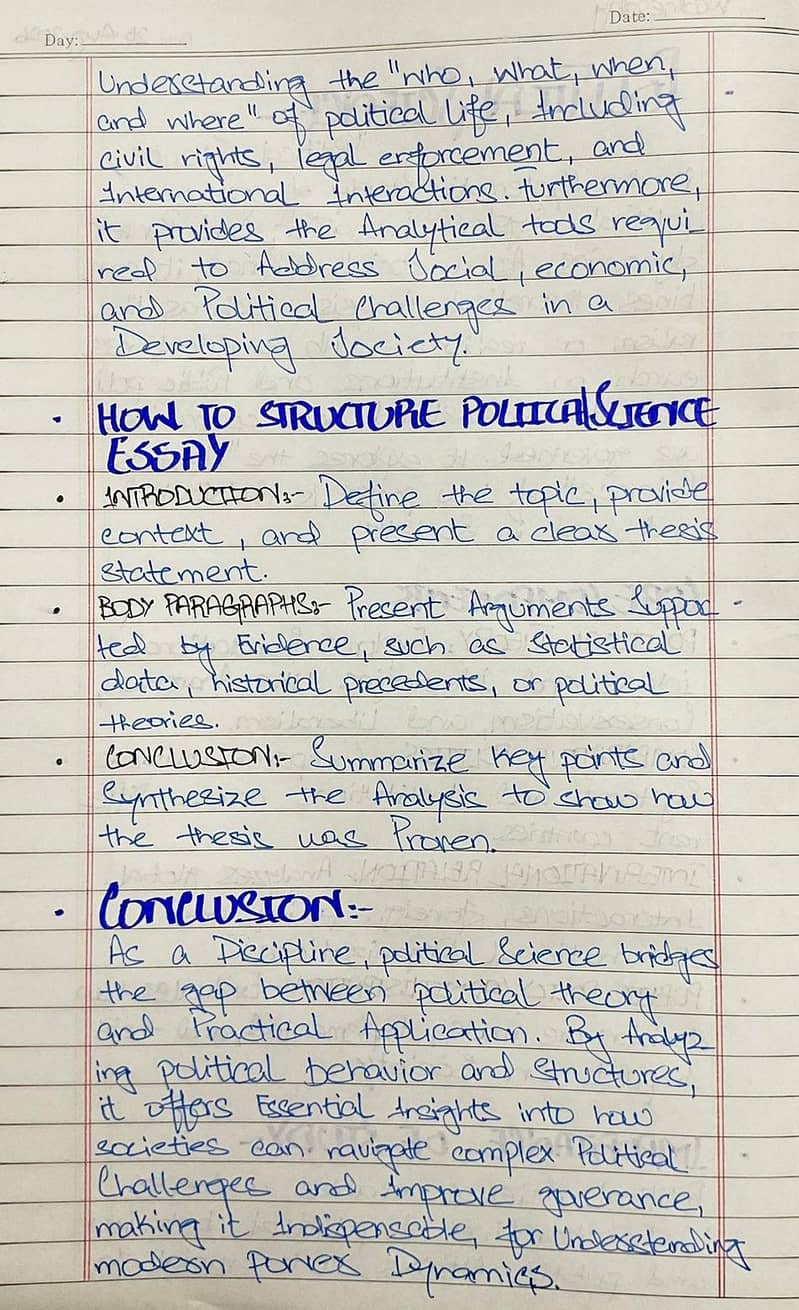 Date:
Day:
Understanding the "who, what, when,
and where" of political life, Including
civil rights, legal enforcement, and
International Interactions. Furthermore,
it provides the Analytical tools requi
red to Address Social, economic,
and Political Challenges in a
Developing Society.
• HOW TO STRUCTURE POLITICAL SCIENCE
ESSAY
• INTRODUCTION:- Define the topic, provide
context, and present a clear thesis
statement.
• BODY PARAGRAPHS:- Present Arguments Suppor -
ted by Evidence, such as Statistical
data, historical precedents, or political
theories.
• CONCLUSION:- Summarize key points and
Synthesize the Analysis to show how
the thesis was Proven.
• CONCLUSION:-
As a Discipline, political Science bridges
the gap between political theory
and Practical Application. By Analyz
ing political behavior and Structures,
it offers Essential Insights into how
societies can navigate complex Political
Challenges and Improve goverance,
making it Indispensable, for Understanding
modern Power Dynamics.